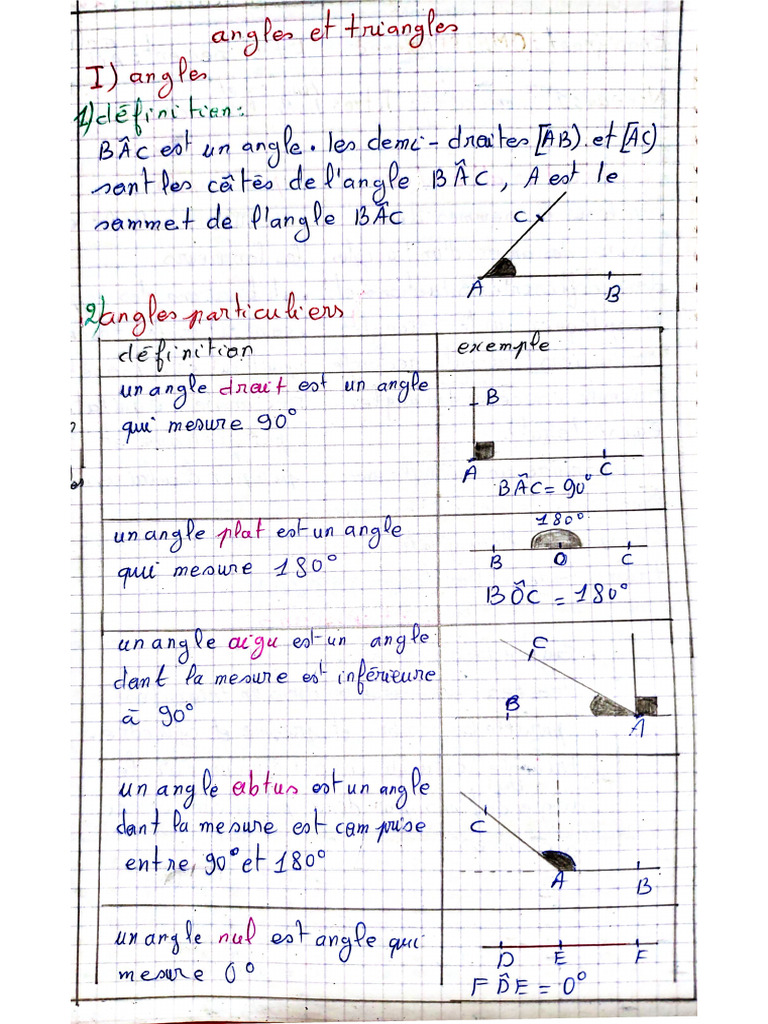 angles et triangles
I) angles
1) définition:
BÂC est un angle. les demi-droites [AB). et [AC)
sont les côtés de l'angle BÂC, A est le
sommet de l'angle BÂC
C
A
B
2) angles particuliers
définition
exemple
un angle droit est un angle
qui mesure 90°
B
A
C
BÂC = 90°
un angle plat est un angle
qui mesure 180°
180°
B
O
C
BÔC = 180°
un angle aigu est un angle
dont la mesure est inférieure
à 90°
C
B
A
un angle obtus est un angle
dont la mesure est comprise
entre 90° et 180°
C
A
B
un angle nul est angle qui
mesure 0°
D
E
F
FD̂E = 0°